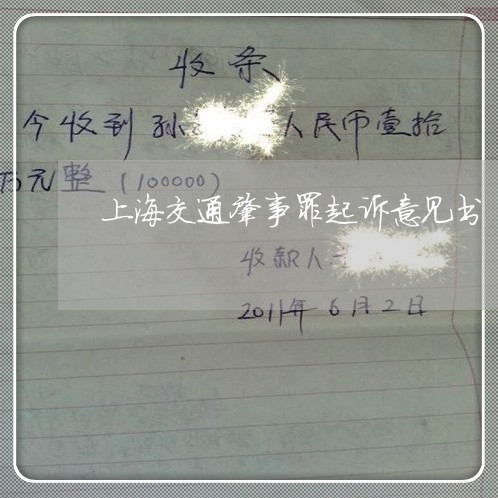 收条
今收到孙 人民币壹拾
万元整(100000)
上海交通肇事罪起诉意见书
收款人
2011年6月2日